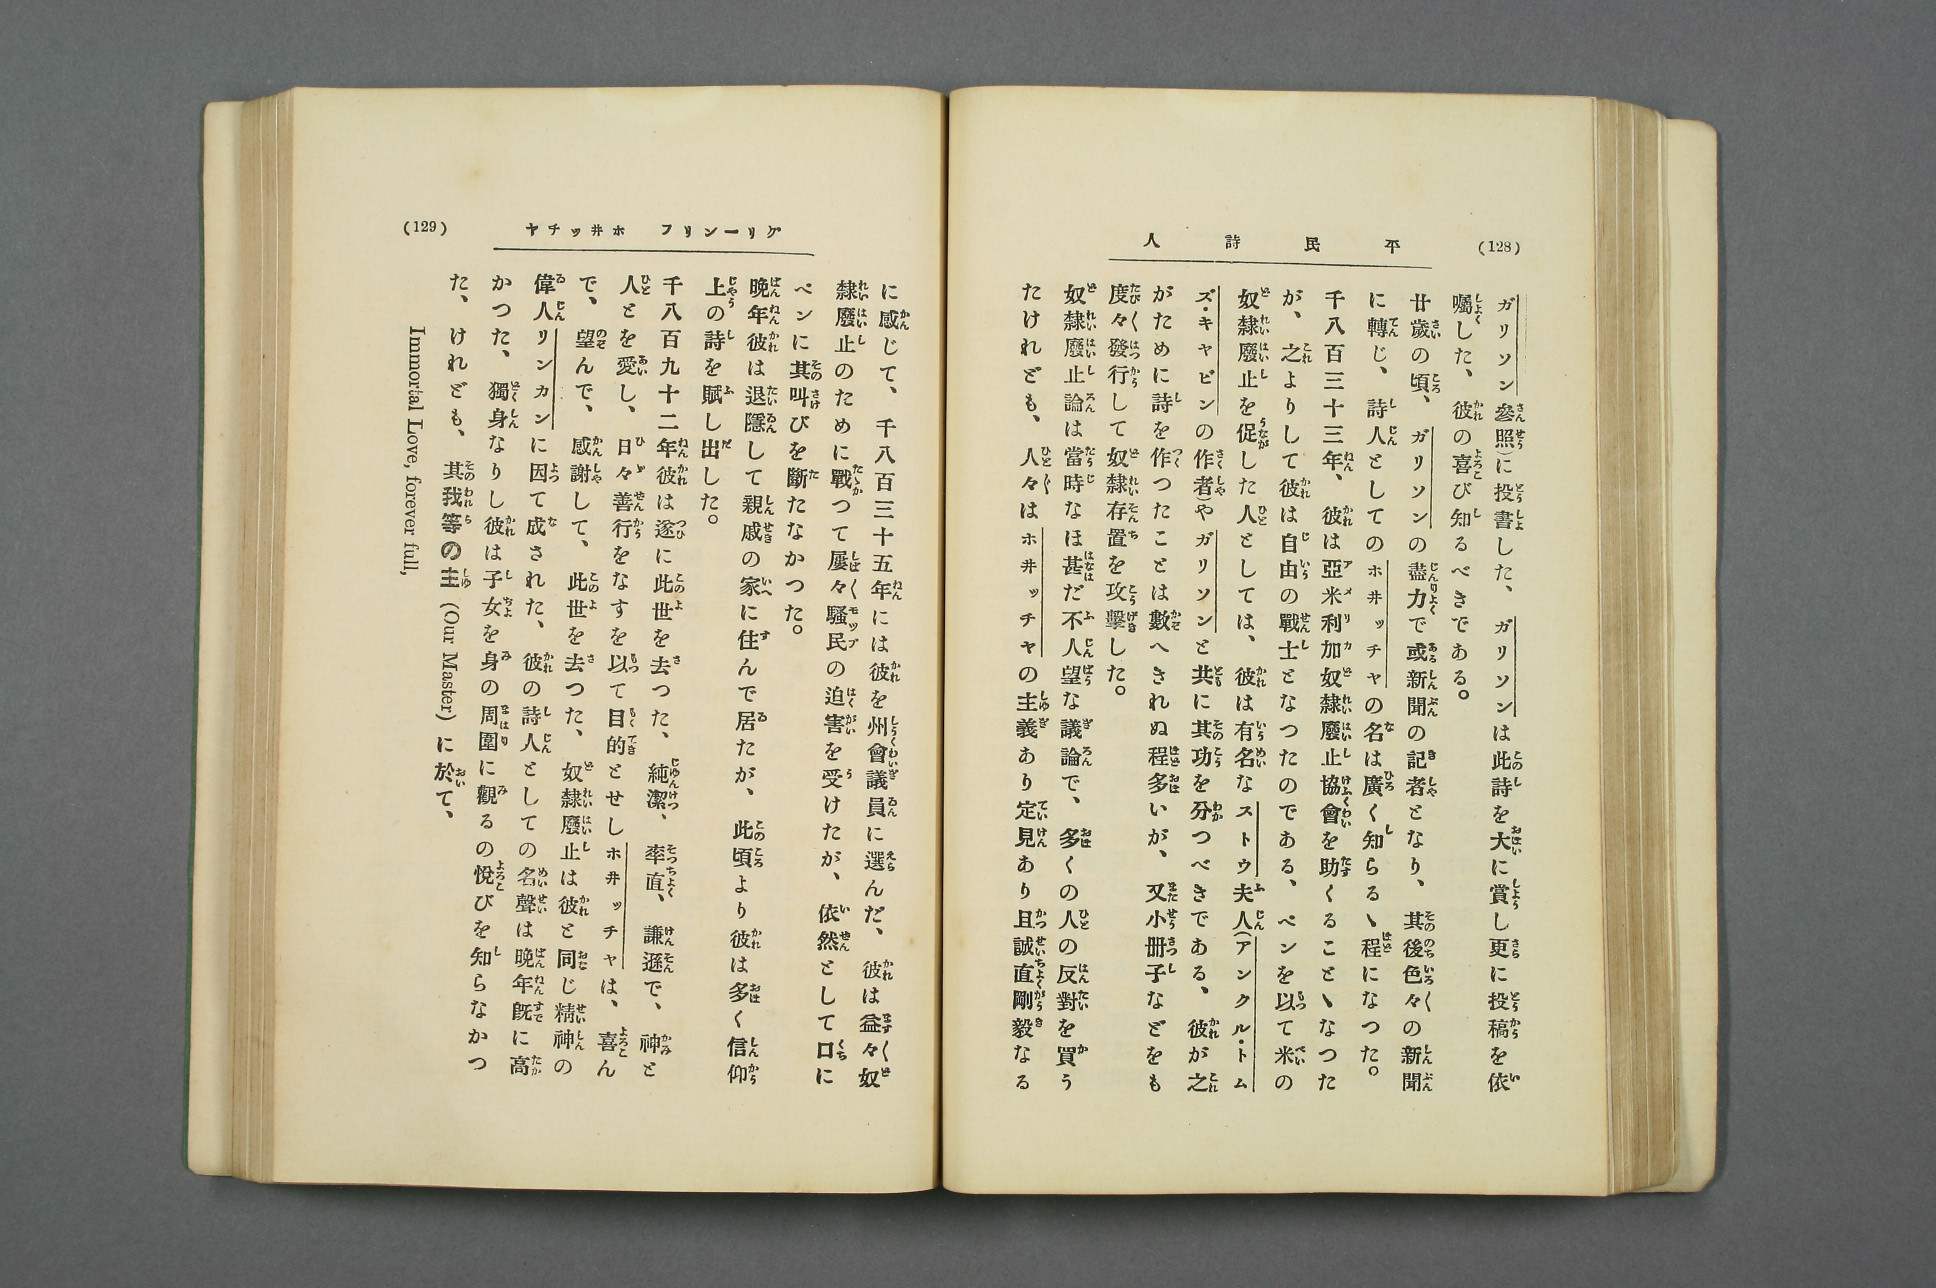 (128)
平民詩人
ガリソン參照)に投書した、ガリソンは此詩を大に賞し更に投稿を依
囑した、彼の喜び知るべきである。
廿歲の頃、ガリソンの盡力で或新聞の記者となり、其後色々の新聞
に轉じ、詩人としてのホ井ッチャの名は廣く知らるヽ程になつた。
千八百三十三年、彼は亞米利加奴隸廢止協會を助くることヽなつた
が、之よりして彼は自由の戰士となつたのである、ペンを以て米の
奴隸廢止を促した人としては、彼は有名なストウ夫人(アンクル・トム
ズ・キャビンの作者)やガリソンと共に其功を分つべきである、彼が之
がために詩を作つたことは數へきれぬ程多いが、又小册子などをも
度々發行して奴隸存置を攻擊した。
奴隸廢止論は當時なほ甚だ不人望な議論で、多くの人の反對を買う
たけれども、人々はホ井ッチャの主義あり定見あり且誠直剛毅なる
グリーンリフ ホ井ッチヤ
(129)
に感じて、千八百三十五年には彼を州會議員に選んだ、彼は益々奴
隸廢止のために戰つて屢々騷民の迫害を受けたが、依然として口に
ペンに其叫びを斷たなかつた。
晚年彼は退隱して親戚の家に住んで居たが、此頃より彼は多く信仰
上の詩を賦し出した。
千八百九十二年彼は遂に此世を去つた、純潔、率直、謙遜で、神と
人とを愛し、日々善行をなすを以て目的とせしホ井ッチャは、喜ん
で、望んで、感謝して、此世を去つた、奴隸廢止は彼と同じ精神の
偉人リンカンに因て成された、彼の詩人としての名聲は晚年旣に高
かつた、獨身なりし彼は子女を身の周圍に觀るの悅びを知らなかつ
た、けれども、其我等の主 (Our Master) に於て、
Immortal Love, forever full,